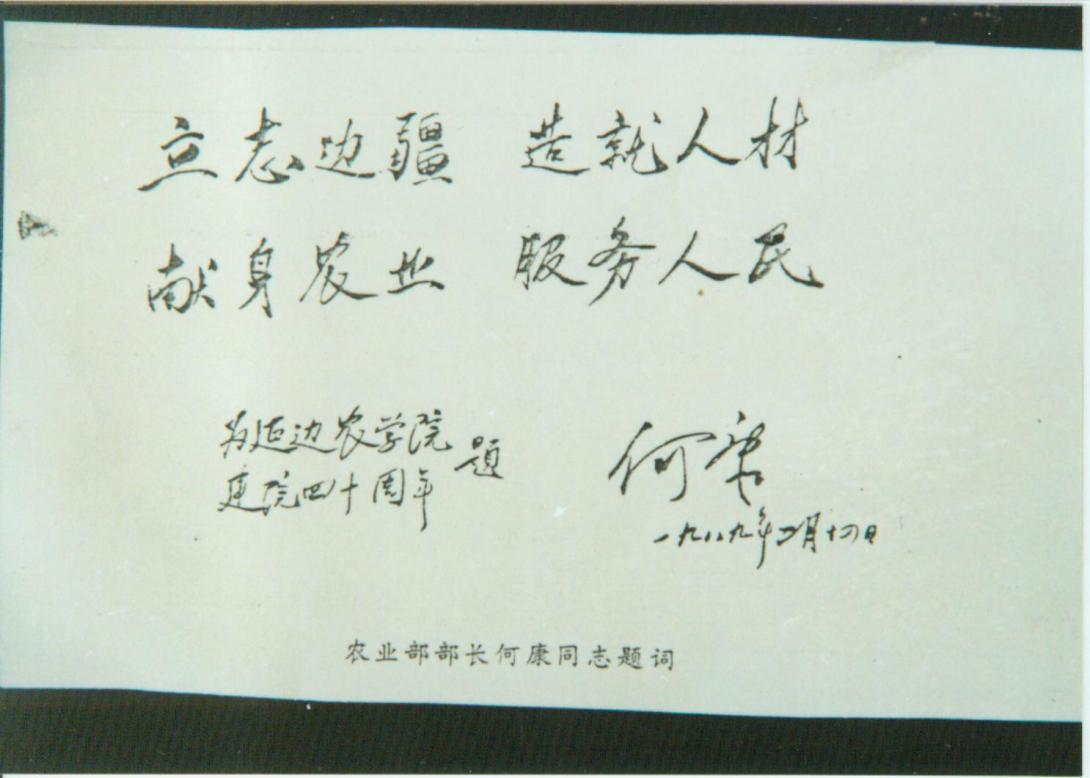 立志边疆 造就人材
献身农业 服务人民
为延边农学院
建院四十周年 题
何康
一九八九年二月十四日
农业部部长何康同志题词